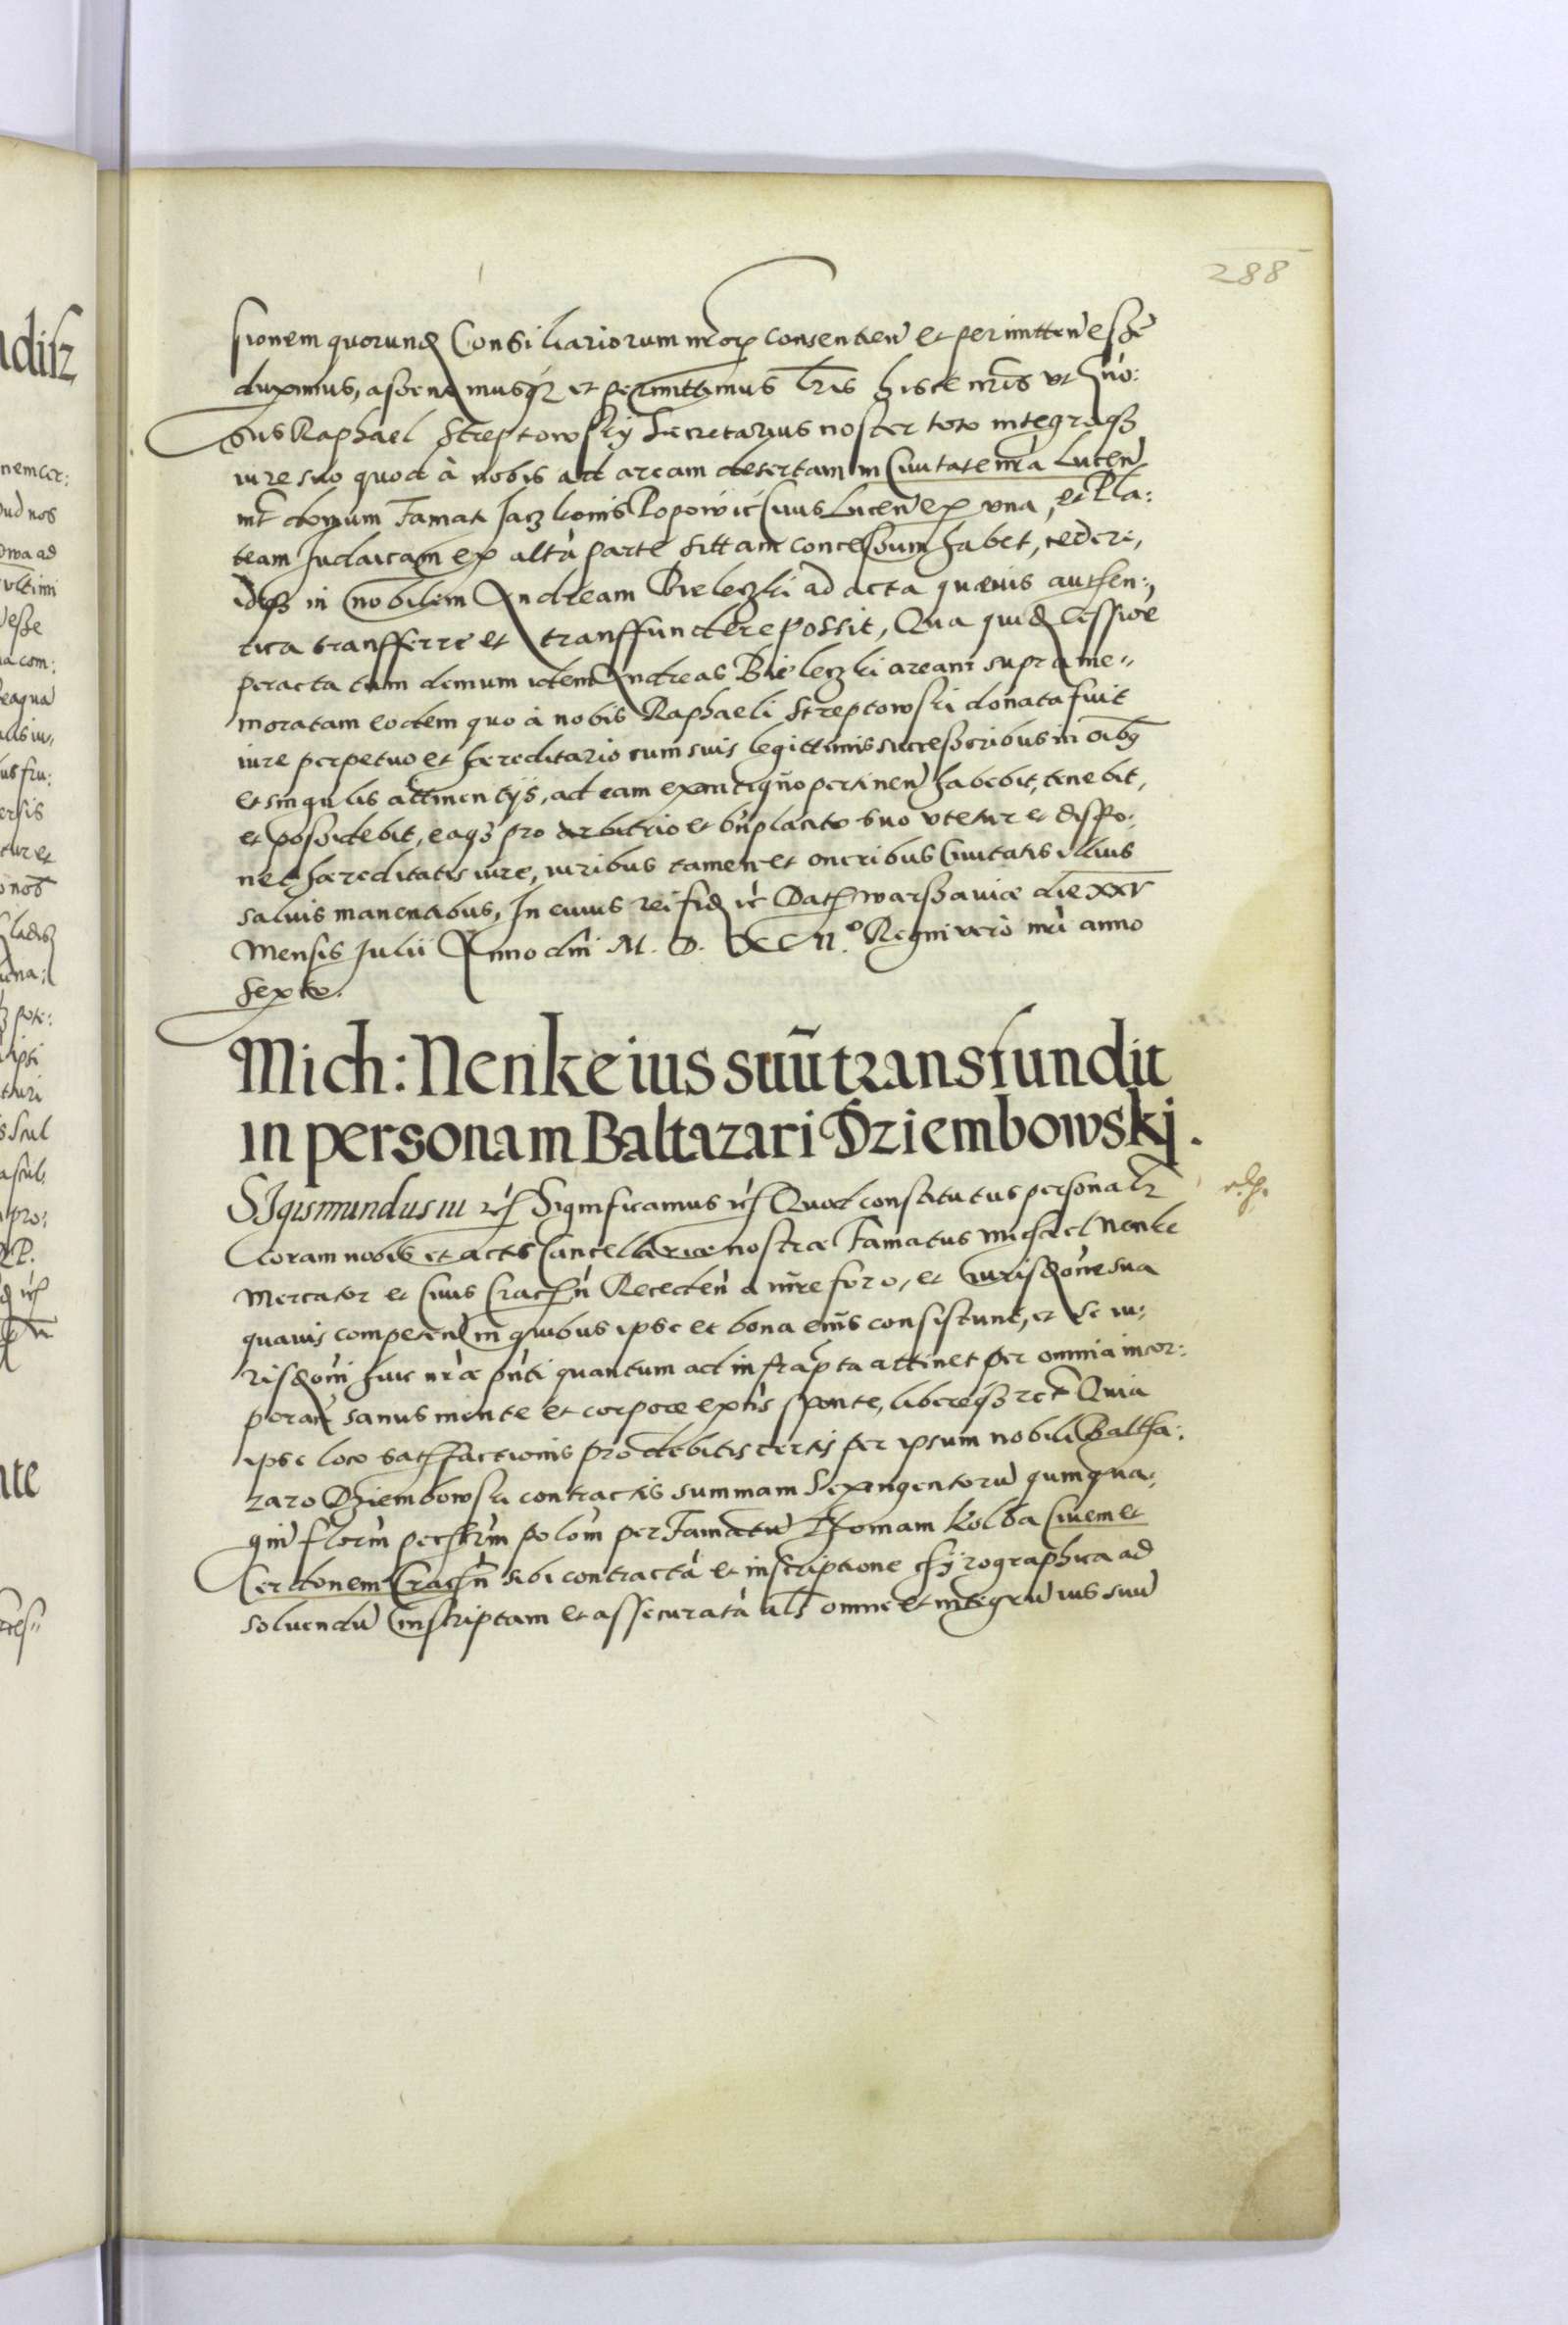 288
sionem quorunda Consiliariorum nrorq consentien et permitten esse
duximus, assentimusq3 et permittimus lris hisce nris ut Gñō:
sus Raphael Streptowskij Secretarius noster toto integroq3
iure suo quod à nobis ad aream desertam in Civitate nra Lucen
int domum Famati Jaczkonis Popowic Civis Lucen ex una, et Pla:
team Judaicam ex altà parte sittam concessum habet, cedere,
idq3 in nobilem Andream Bieleczki ad acta quævis authen:
tica transferre et transffundere possit, Qua quid cessioe
peracta tum demum idem Andreas Bieleczki aream suprame:
moratam eodem quo à nobis Raphaeli Streptowski donata fuit
iure perpetuo et hæreditario cum suis legittimis successoribus in oibq
et singulis attinentijs, ad eam ex antiquo pertinen habebit, tenebit,
et possidebit, eaq3 pro arbitrio et bñplacito suo utetur et dispo:
net hæreditatis iure, iuribus tamen et oneribus Civitatis illius
salvis manentibus, In cuius rei fid etc Dat Warssaviæ die xxv
Mensis Julii Anno dni M. D. XCII.º Regni verò nri anno
Sexto.
Mich: Nenke ius suū transfundit
in personam Baltazari Dziembowskj.
SIgismundus iii etc Significamus etc Quod constitutus personalr
Coram nobis et actis Cancellariæ nostræ Famatus Michael Nenke
Mercator et Civis Cracn Receden a iure foro, et iurisdone sua
quavis competen in quibus ipse et bona eius consistunt, et se iu:
risdoni huic nræ pnti quantum ad infrapta attinet per omnia incor:
poran sanus mente et corpore exns sponte, libereq3 rect Quia
ipse loco satisfactionis pro debitis certis per ipsum nobili Baltha:
zaro Dziembowski contractis summam Sexingentoru quinqua:
gin floru pecskm polom per Famatu Thomam Kolba Civem et
Cerdonem Cracn sibi contractà et inscriptione chyrographica ad
solvendu inscriptam et assecuratà als omne et integru ius suu